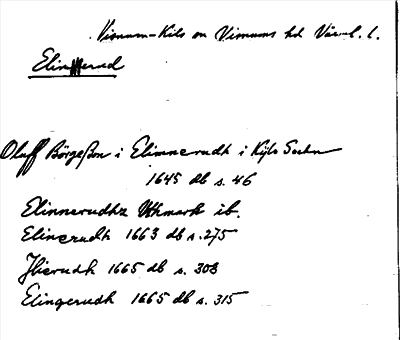 Visnum-Kils sn Visnums hd Värml. l.
Elinerud
Oluff Börgeßon i Elinnerudh i Kijls Sochn
1645 db s. 46
Elinnerudhz Uthmark ib.
Elinerudh 1663 db s. 275
Jlierudh 1665 db s. 303
Elingerudh 1665 db s. 315